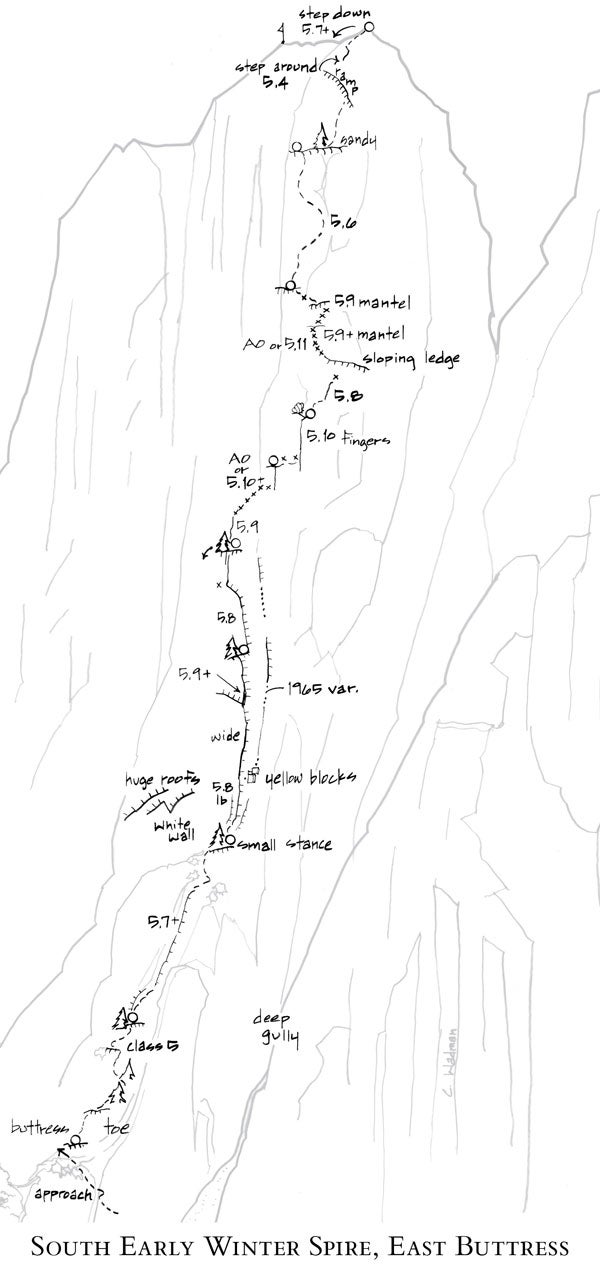 step down
5.7+
step around
5.4
ramp
sandy
5.6
5.9 mantel
5.9+ mantel
A0 or 5.11
sloping ledge
5.8
5.10 fingers
A0
or
5.10+
5.9
5.8
5.9+
1965 var.
wide
yellow blocks
huge roofs
5.8
1b
white
wall
small stance
5.7+
deep
gully
class 5
C. Wadman
buttress toe
approach
SOUTH EARLY WINTER SPIRE, EAST BUTTRESS